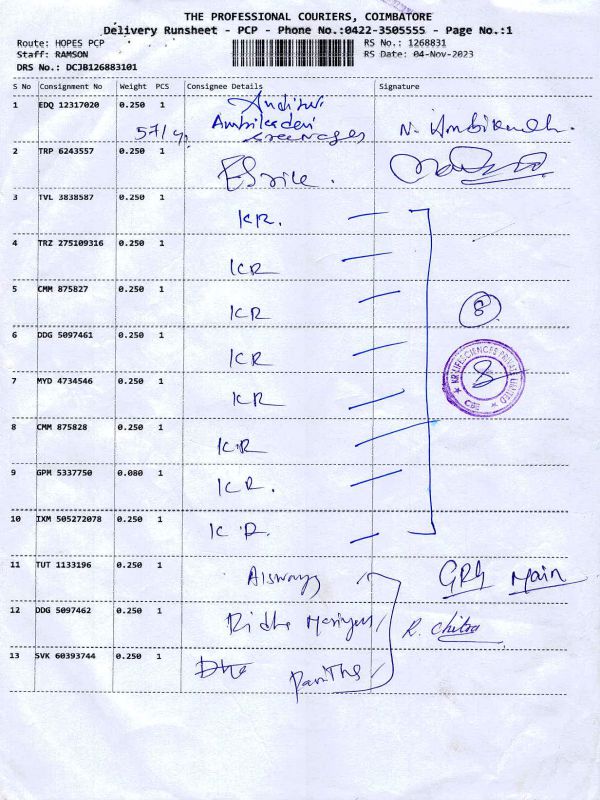 THE PROFESSIONAL COURIERS, COIMBATORE
Delivery Runsheet - PCP - Phone No.:0422-3505555 - Page No.:1
Route: HOPES PCP RS No.: 1268831
Staff: RAMSON RS Date: 04-Nov-2023
DRS No.: DCJB126883101
S No Consignment No Weight PCS Consignee Details Signature
1 EDQ 12317020 0.250 1
Ambikadevi
2 TRP 6243557 0.250 1
3 TVL 3838587 0.250 1 KR.
4 TRZ 275109316 0.250 1 KR
5 CMM 875827 0.250 1 KR
8
6 DDG 5097461 0.250 1 KR
KR LIFESCIENCES PRIVATE LIMITED
CBE
8
7 MYD 4734546 0.250 1 KR
8 CMM 875828 0.250 1 KR
9 GPM 5337750 0.080 1 KR.
10 IXM 505272078 0.250 1 KR.
11 TUT 1133196 0.250 1 GRG Main
12 DDG 5097462 0.250 1 R. Chitra
13 SVK 60393744 0.250 1